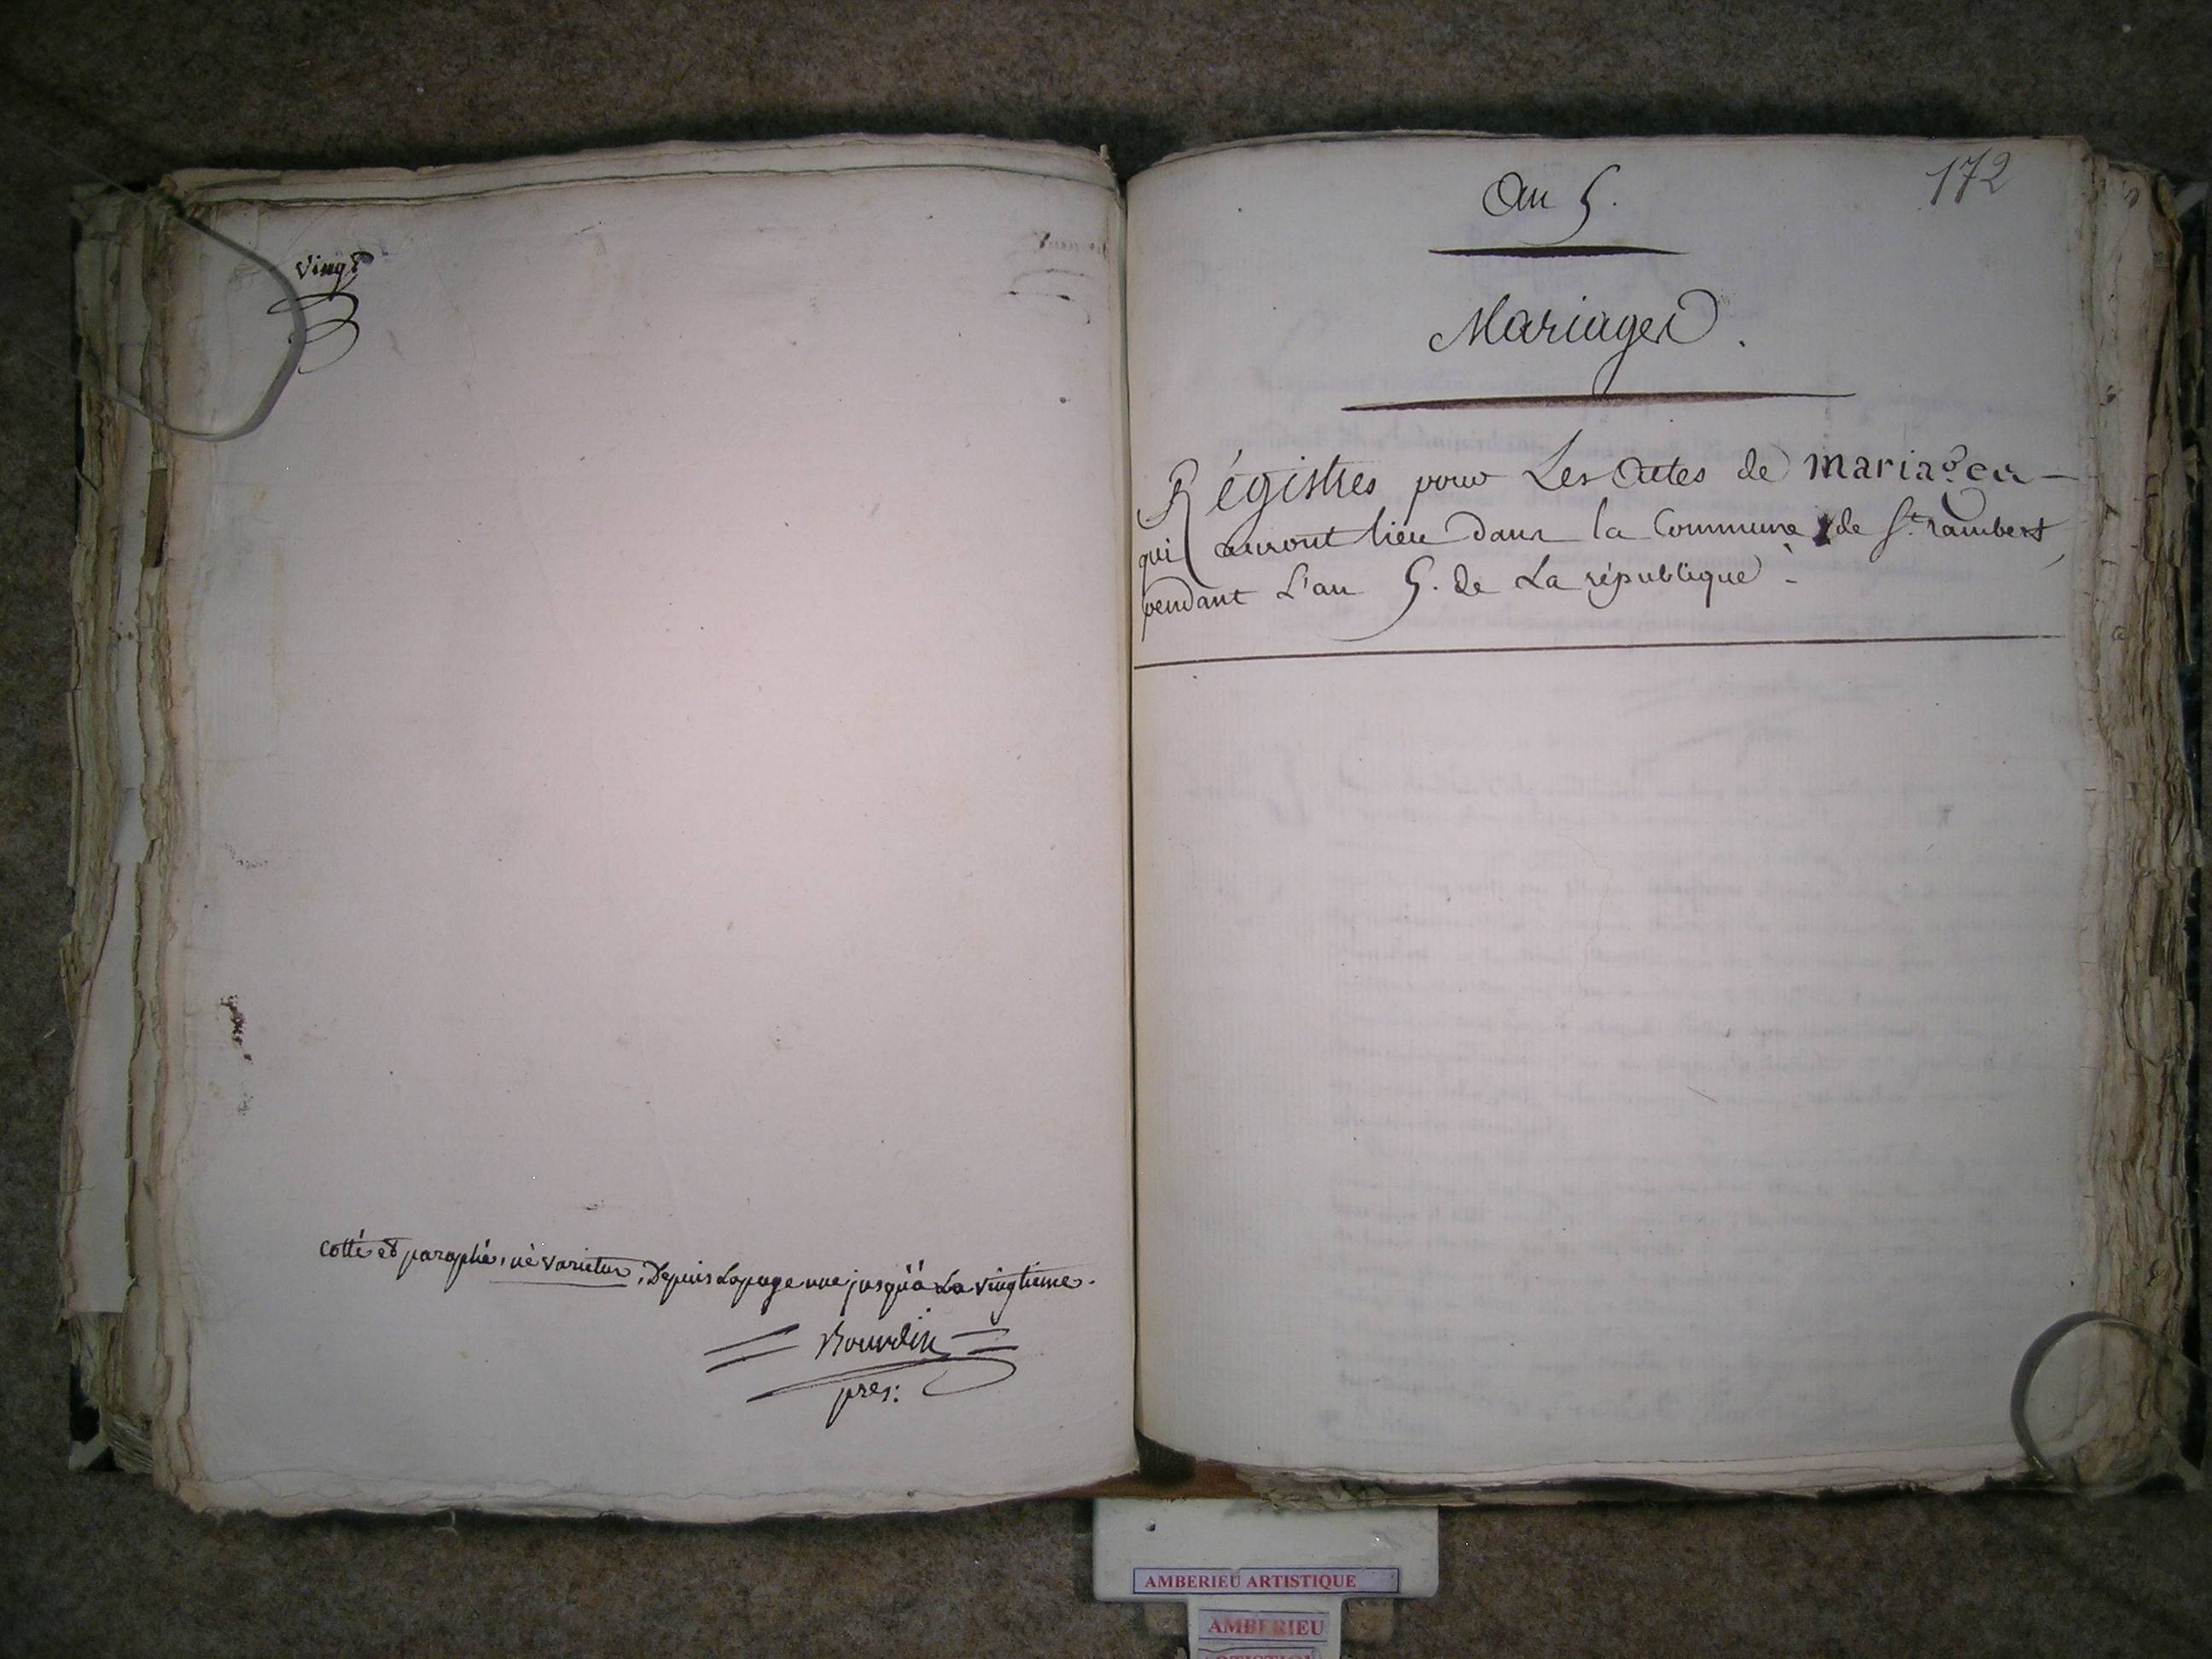 vingt
cotté et paraphé, né varietur, Depuis La page une jusqu'à La vingtieme.
Bourdin
pres:
172
An 5.
Mariages.
Régistres pour Les Actes de mariages
qui auront lieu dans la Commune de St. rambert,
pendant L'an 5. de La république.
AMBERIEU ARTISTIQUE
AMBERIEU
ARTISTIQUE